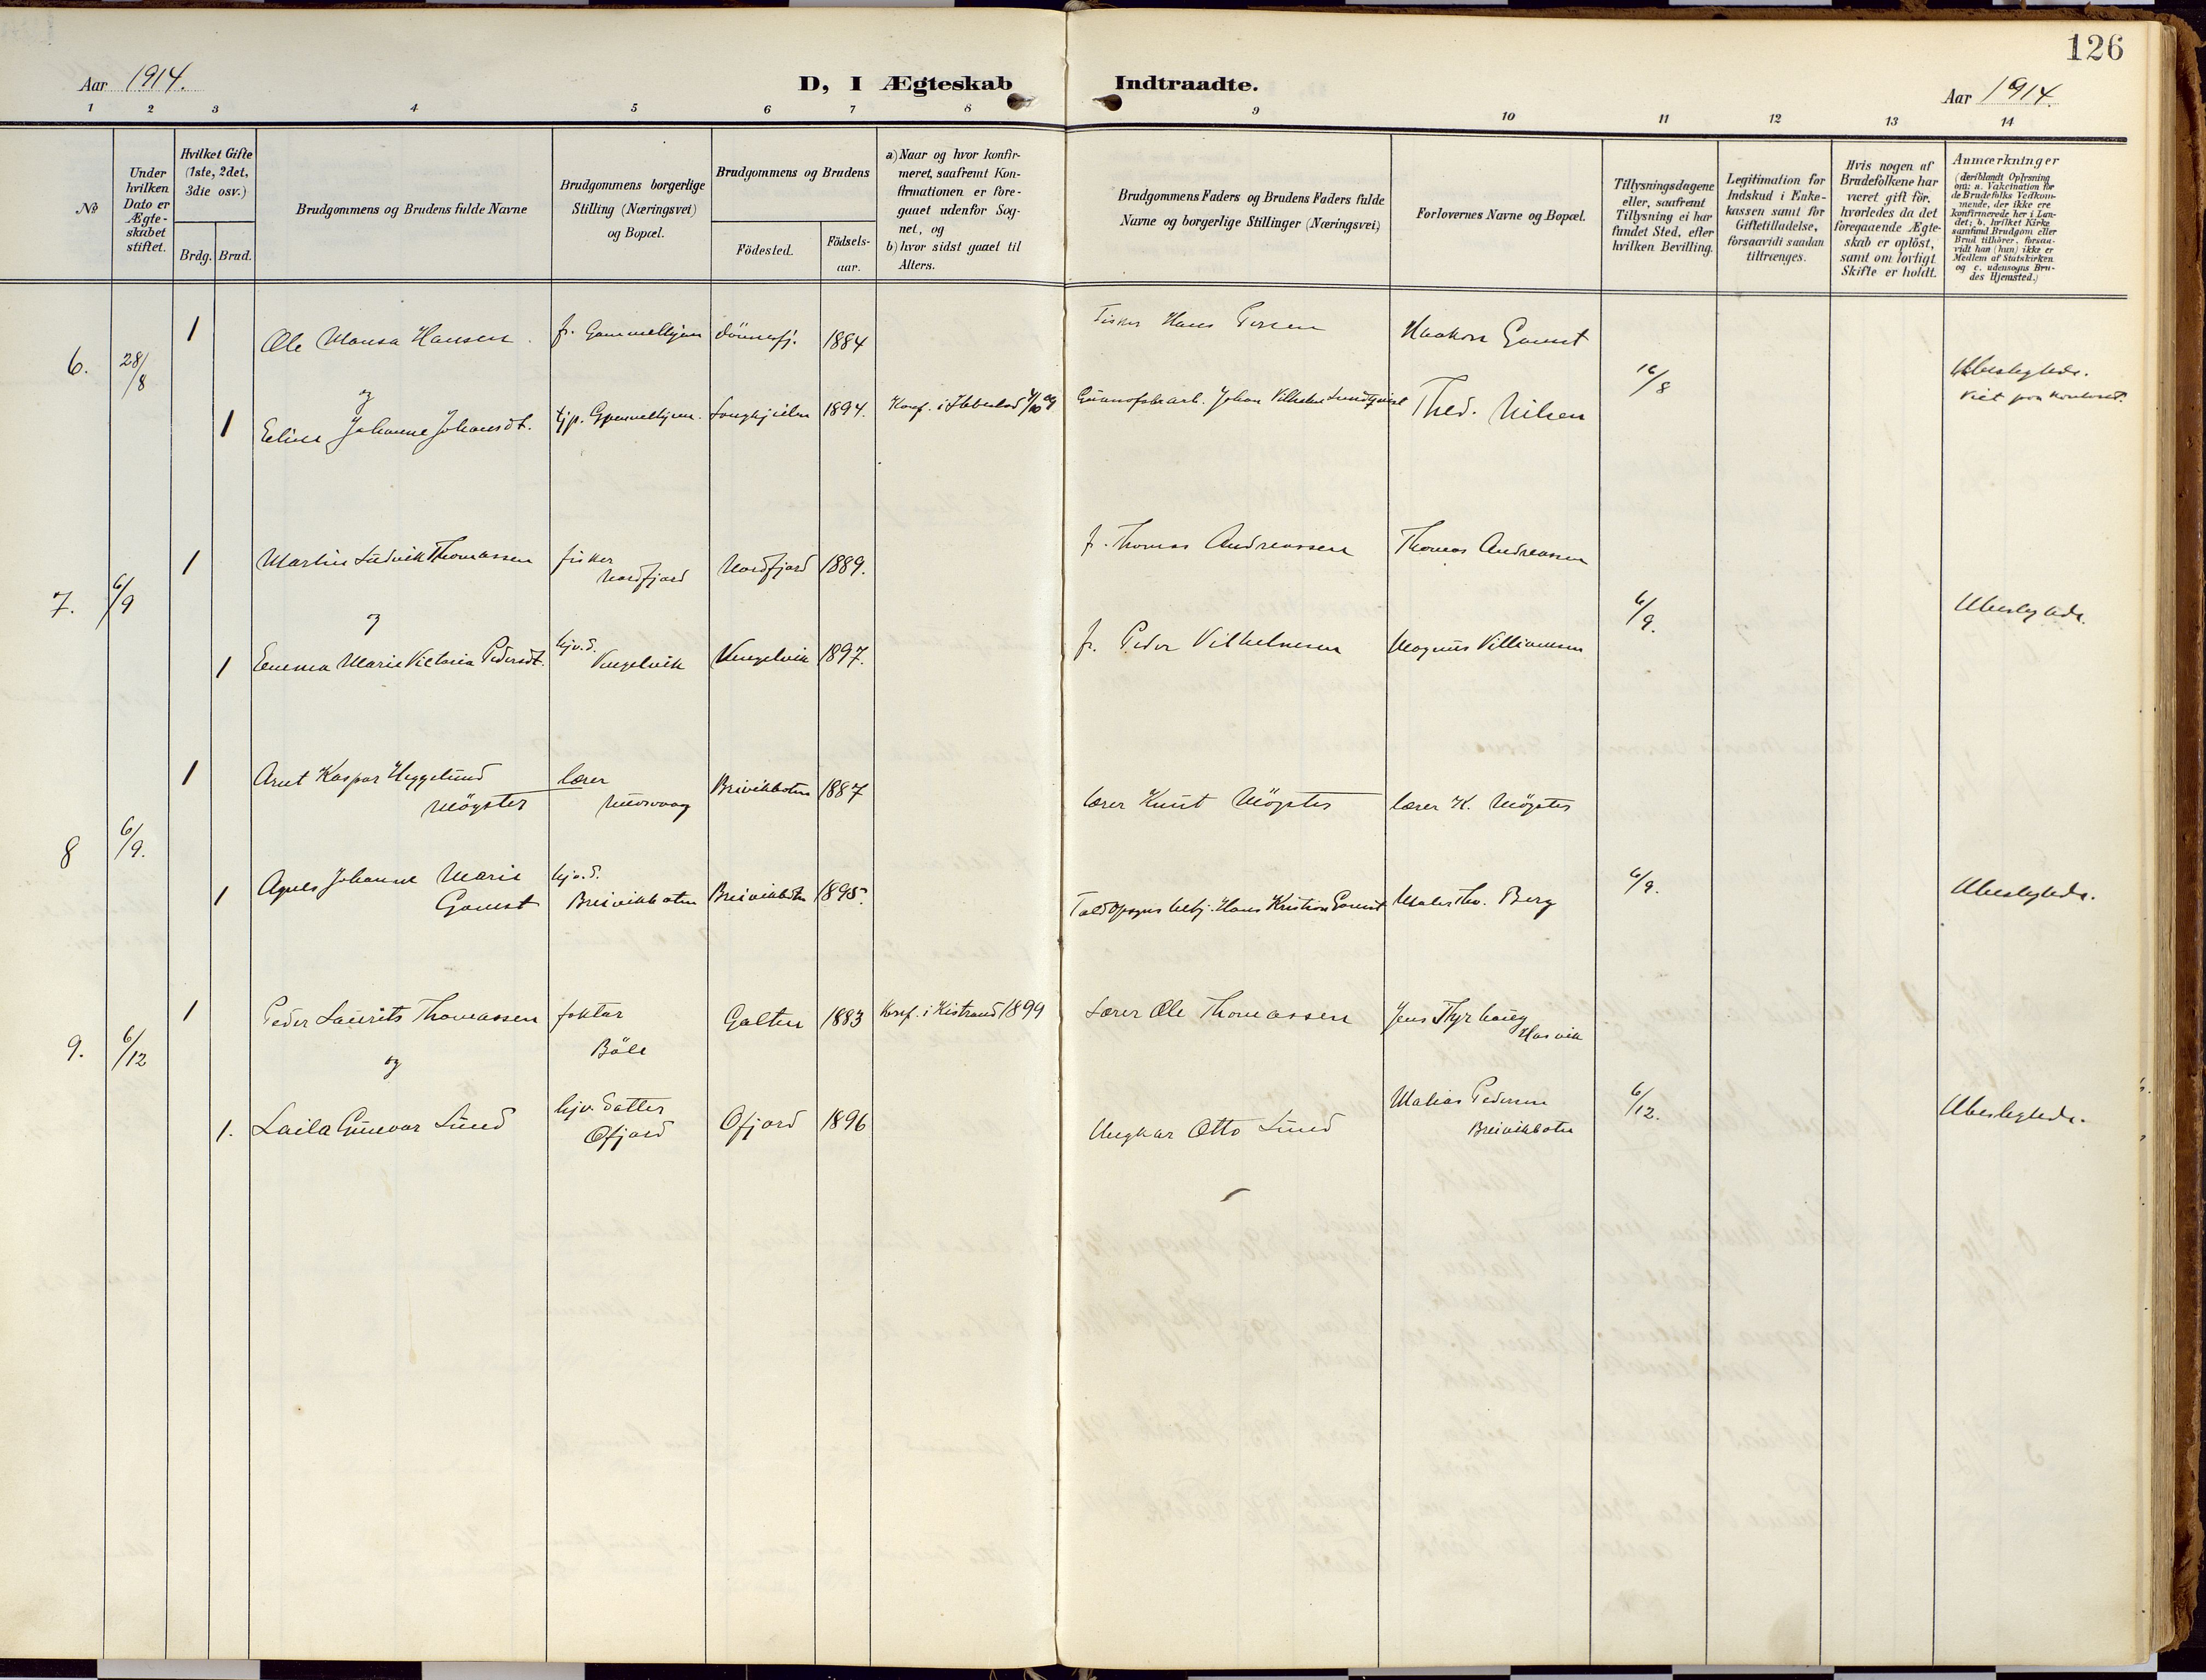 126
Aar 1914.
D, I Ægteskab Indtraadte.
Aar 1914.
1 2 3 4 5 6 7 8 9 10 11 12 13 14
No
Under hvilken Dato er Ægteskabet stiftet.
Hvilket Gifte (1ste, 2det, 3die osv.)
Brdg. Brud.
Brudgommens og Brudens fulde Navne
Brudgommens borgerlige Stilling (Næringsvei) og Bopæl.
Brudgommens og Brudens
Födested. Födsels-aar.
a) Naar og hvor konfirmeret, saafremt Konfirmationen er foregaaet udenfor Sognet, og
b) hvor sidst gaaet til Alters.
Brudgommens Faders og Brudens Faders fulde Navne og borgerlige Stillinger (Næringsvei)
Forlovernes Navne og Bopæl.
Tillysningsdagene eller, saafremt Tillysning ei har fundet Sted, efter hvilken Bevilling.
Legitimation for Indskud i Enkekassen samt for Giftetilladelse, forsaavidt saadan tiltrænges.
Hvis nogen af Brudefolkene har været gift för, hvorledes da det foregaaende Ægteskab er oplöst, samt om lovligt Skifte er holdt.
Anmærkninger (deriblandt Oplysning om: a. Vakcination for de Brudefolks Vedkommende, der ikke ere konfirmerede her i Landet; b. hvilket Kirkesamfund Brudgom eller Brud tilhörer, forsaavidt han (hun) ikke er Medlem af Statskirken og c. udensogns Brudes Hjemsted.)
6. 28/8
1 Ole Mansa Hansen. f. Gammelhjem Dönnesfj. 1884 Fisker Hans Persen Haakon Gamst
16/8 Ubeslegtede.
Viet paa kontoret.
og
1 Eline Johanne Johansdt. tjp. Gammelhjem. 1894. Konf. i Ibbestad 4/10 09 Guanofabr.arb. Johan Vilhelm Lundqvist Thed. Nilsen
7. 6/9
1 Martin Ludvik Thomassen fisker Nordfjord Nordfjord 1889. f. Thomas Andreassen Thomas Andreassen
og
6/9. Ubeslegtede.
1 Emma Marie Victoria Pedersdt. hjv.d. Vengelvik Vengelvik 1897. f. Peder Vilhelmsen Magnus Villiamsen
8 6/9.
1 Arnt Kaspar Heggelund Mögster lærer Breivikbotn 1887 lærer Knut Mögster lærer K. Mögster
1 Agnes Johanne Marie Gamst hjv.d. Breivikbotn Breivikbotn 1895. Toldopsyns betj. Hans Kristian Gamst Maler Thv. Berg
6/9. Ubeslegtede.
9. 6/12
1 Peder Laurits Thomassen faktor Böle Galten 1883 Konf. i Kistrand 1899 Lærer Ole Thomassen Jens Thyrhaug Hasvik
og
1. Laila Gunvor Lund hjv. datter Ofjord Ofjord 1896 Ungkar Otto Lund Matias Pedersen Breivikbotn
6/12. Ubeslegtede.